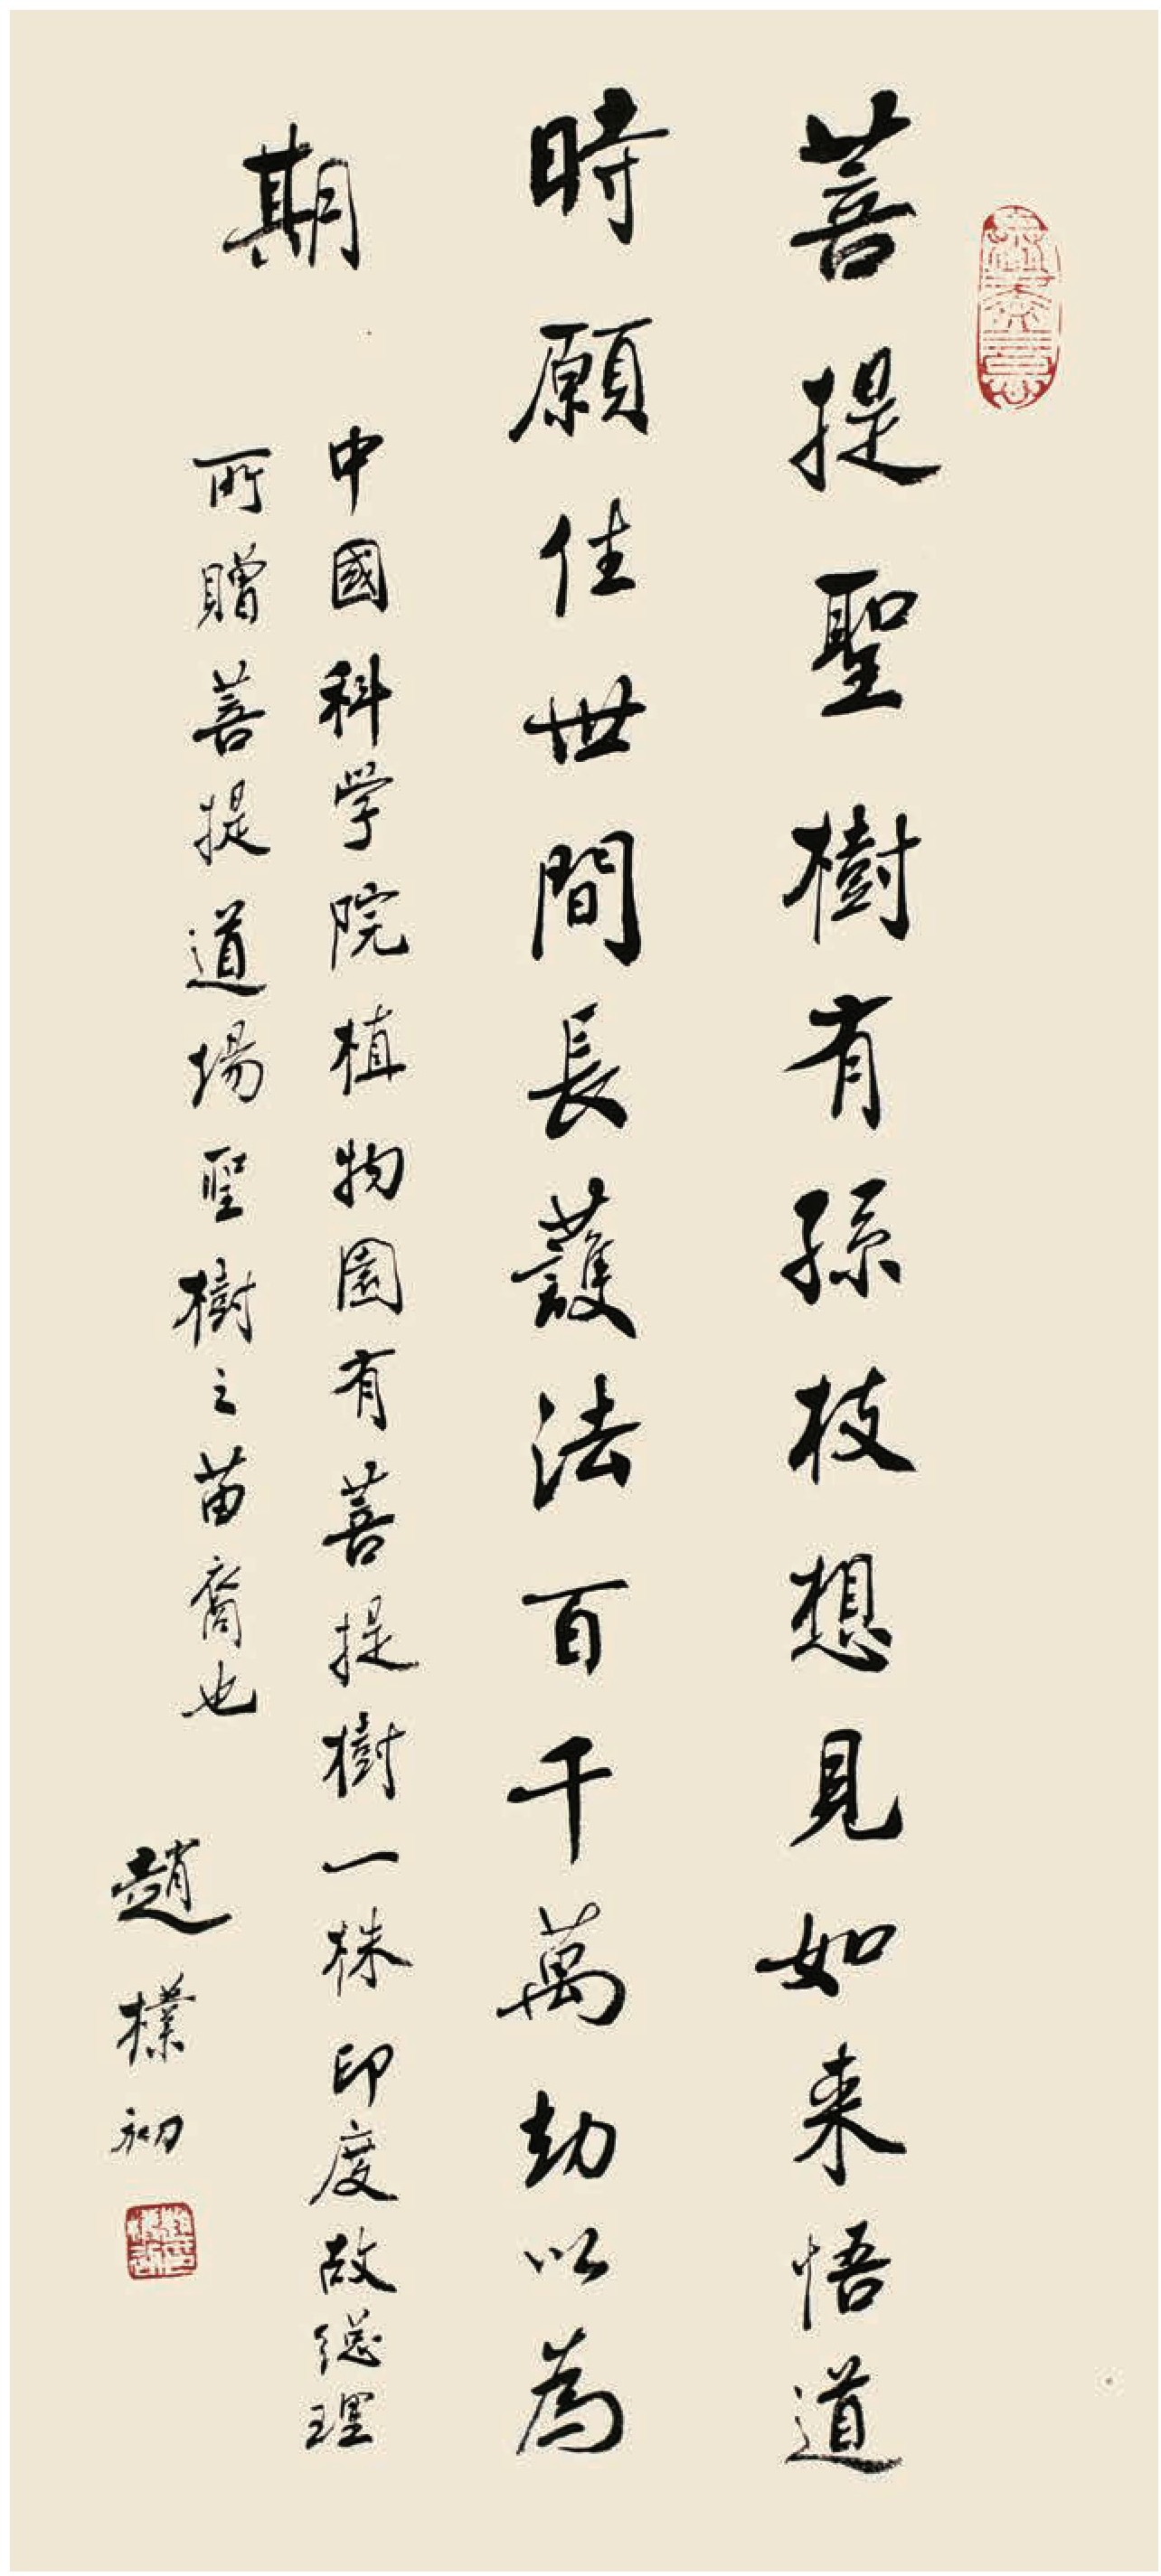 菩提聖樹有孫枝想見如来悟道
時願住世間長護法百千萬劫以為
期
中國科学院植物園有菩提樹一株印度故總理
所贈菩提道場聖樹之苗裔也
趙樸初